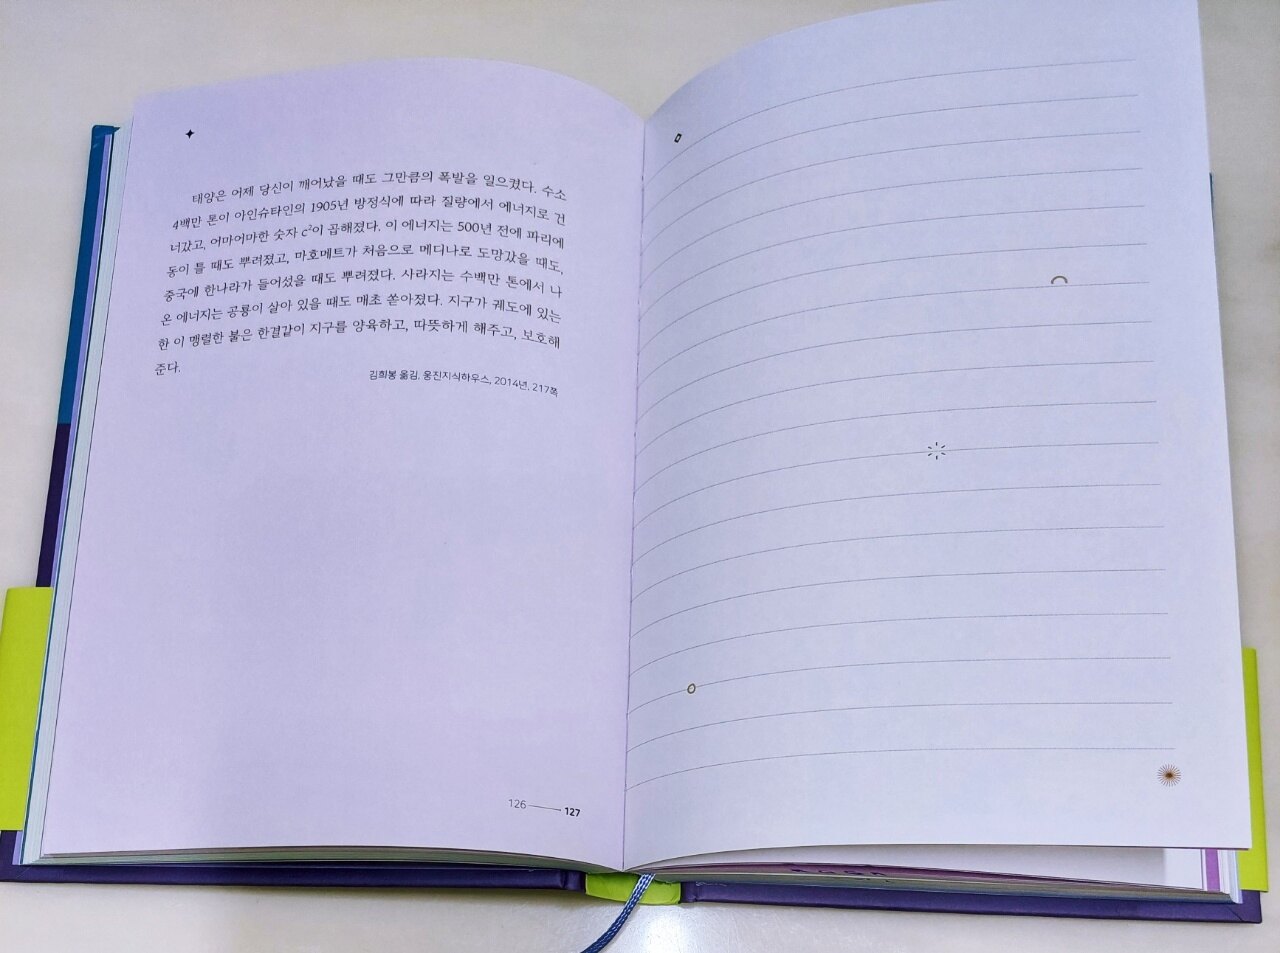 태양은 어제 당신이 깨어났을 때도 그만큼의 폭발을 일으켰다. 수소
4백만 톤이 아인슈타인의 1905년 방정식에 따라 질량에서 에너지로 건
너갔고, 어마어마한 숫자 c²이 곱해졌다. 이 에너지는 500년 전에 파리에
동이 틀 때도 뿌려졌고, 마호메트가 처음으로 메디나로 도망갔을 때도,
중국에 한나라가 들어섰을 때도 뿌려졌다. 사라지는 수백만 톤에서 나
온 에너지는 공룡이 살아 있을 때도 매초 쏟아졌다. 지구가 궤도에 있는
한 이 맹렬한 불은 한결같이 지구를 양육하고, 따뜻하게 해주고, 보호해
준다.
김희봉 옮김, 웅진지식하우스, 2014년, 217쪽
126 127